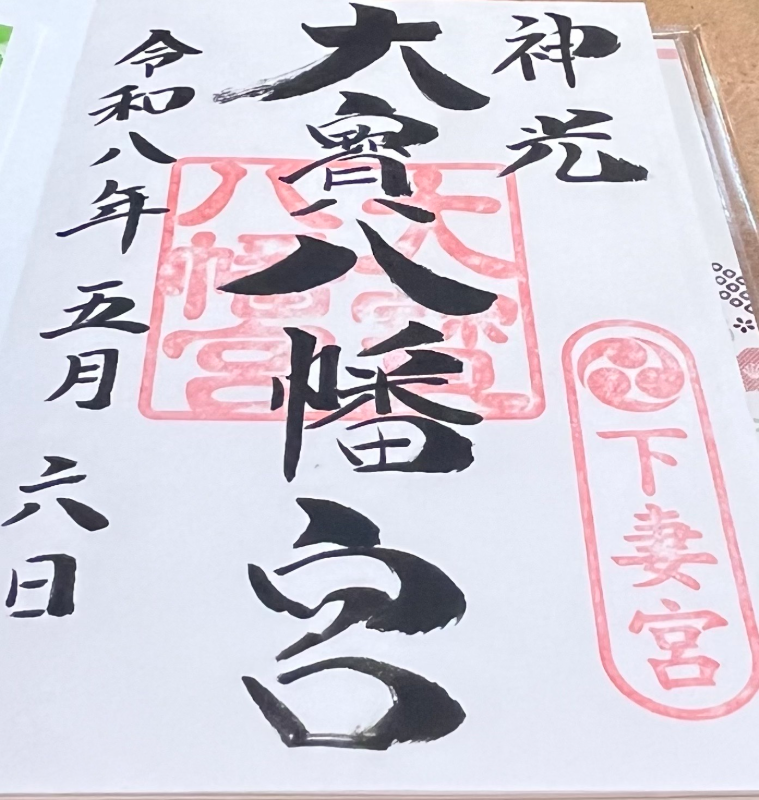 神光
下妻宮
大寳八幡宮
大寳
八幡宮
令和八年五月六日